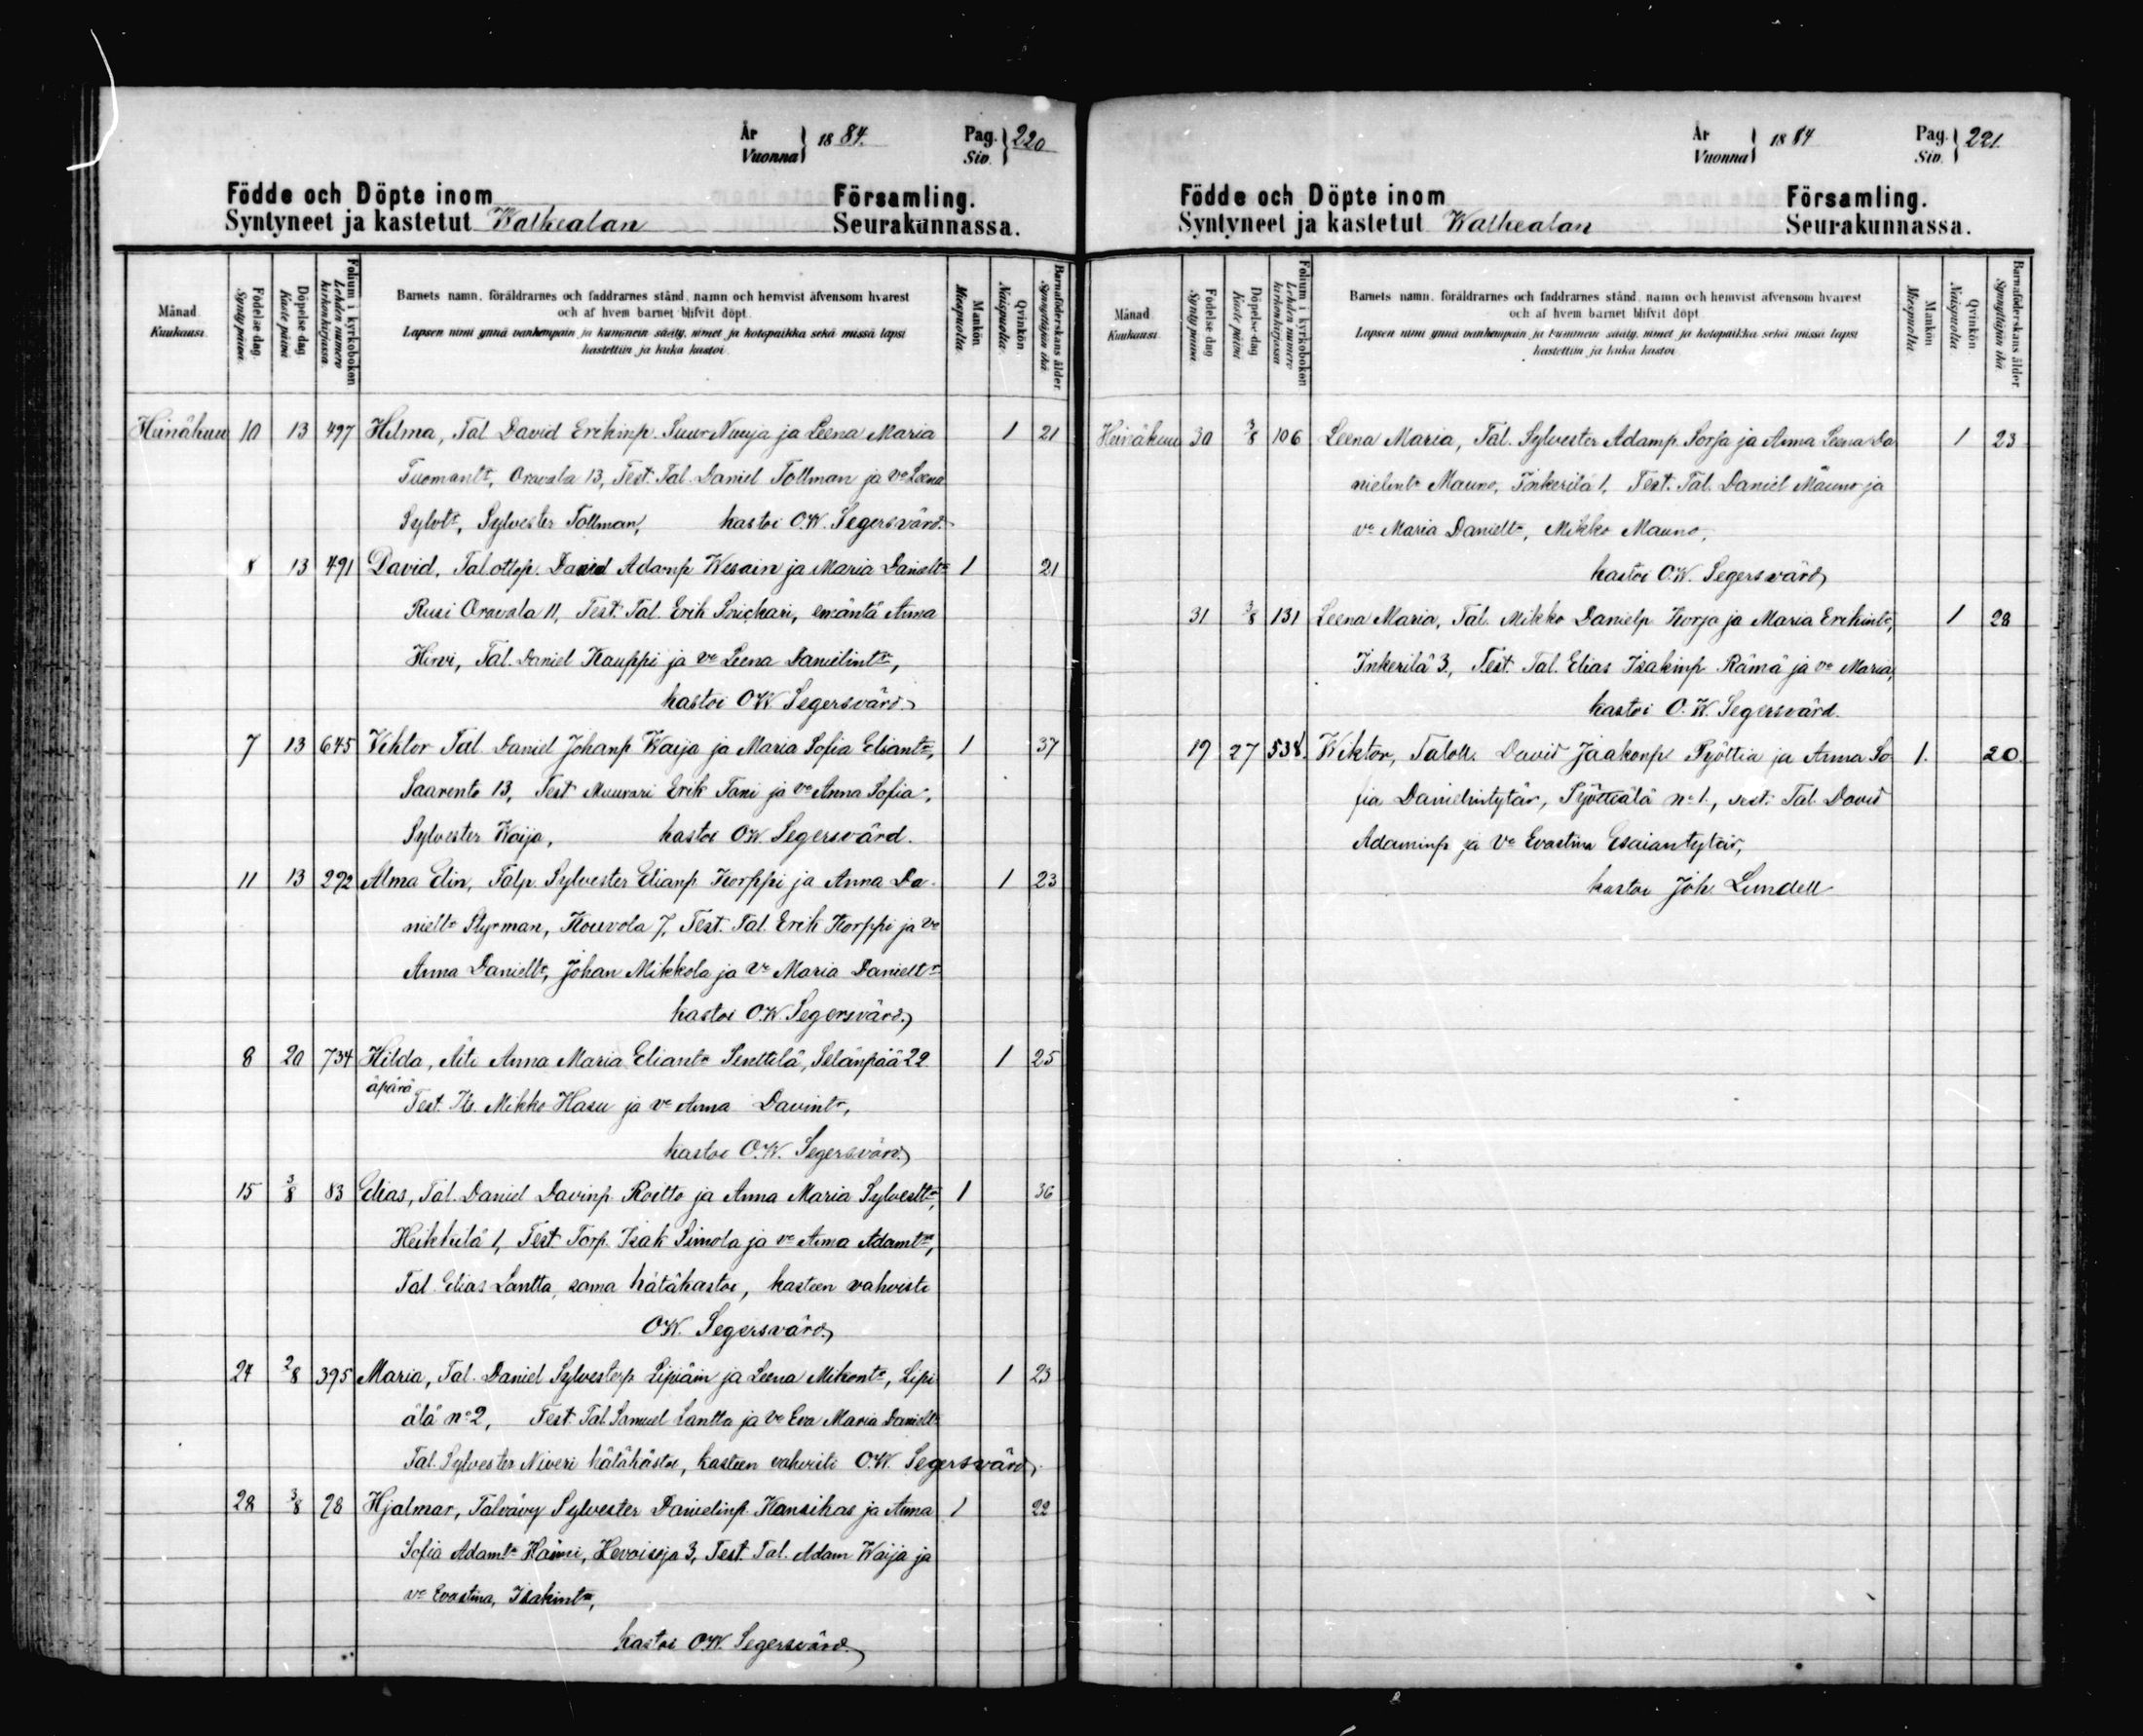 År
Vuonna } 18 84. Pag.
Siv. } 220
Födde och Döpte inom Församling.
Syntyneet ja kastetut Walkealan Seurakunnassa.
Månad.
Kuukausi.
Födelse dag.
Synty päivä.
Döpelse dag
Kaste päivä
Folium i kyrkoboken
Lehden numero
kirkonkirjassa
Barnets namn, föräldrarnes och faddrarnes stånd, namn och hemvist äfvensom hvarest
och af hvem barnet blifvit döpt.
Lapsen nimi ynnä vanhempain ja kummein sääty, nimet ja kotopaikka sekä missä lapsi
kastettiin ja kuka kastoi.
Mankön
Miespuolia.
Qvinkön
Naispuolia.
Barnaföderskans ålder
Synnyttäjän ikä.
Heinäkuu 10 13 497 Hilma, Tal David Erikinp. Suur Nuija ja Leena Maria 1 21
Tuomantr, Oravala 13, Test. Tal. Daniel Tollman ja vo Leena
Sylvtr, Sylvester Tollman, kastoi O.W. Segersvärd.
8 13 491 David, Tal. ottop. David Adamp Wesain ja Maria Danieltr 1 21
Rusi Oravala 11, Test. Tal. Erik Snickari, emäntä Anna
Hirvi, Tal. Daniel Kauppi ja vo Leena Danielintr,
kastoi O.W. Segersvärd.
7 13 645 Viktor Tal. Daniel Johanp Waija ja Maria Sofia Eliantr, 1 37
Saarento 13, Test. Muurari Erik Tani ja vo Anna Sofia,
Sylvester Waija, kastoi O.W. Segersvärd.
11 13 292 Alma Elin, Talp. Sylvester Elianp Korppi ja Anna Da- 1 23
nieltr Styrman, Kouvola 7, Test. Tal. Erik Korppi ja vo
Anna Danieltr, Johan Mikkola ja vo Maria Danieltr
kastoi O.W. Segersvärd.
8 20 734 Hilda, Äiti Anna Maria Eliantr Senttilä, Selänpää 22 1 25
äpärä
Test. Ks. Mikko Hasu ja vo Anna Davintr,
kastoi O.W. Segersvärd.
15 3/8 83 Elias, Tal. Daniel Davinp. Roitto ja Anna Maria Sylvesttr, 1 36
Heikkilä 1, Test. Torp. Isak Simola ja vo Anna Adamtr,
Tal. Elias Lantta, sama hätäkastoi, kasteen vahvisti
O.W. Segersvärd.
24 2/8 395 Maria, Tal. Daniel Sylvesterp Lipiäin ja Leena Mikontr, Lipi 1 23
älä no 2, Test. Tal. Samuel Lantta ja vo Eva Maria Danieltr
Tal. Sylvester Niveri hätäkastoi, kasteen vahvisti O.W. Segersvärd.
28 3/8 28 Hjalmar, Talvävy Sylvester Danielinp. Kansikas ja Anna 1 22
Sofia Adamtr Haimi, Hevoisoja 3, Test. Tal. Adam Waija ja
vo Evastina, Isakintr,
kastoi O.W. Segersvärd.
År
Vuonna } 18 84 Pag.
Siv. } 221
Födde och Döpte inom Församling.
Syntyneet ja kastetut Walkealan Seurakunnassa.
Månad
Kuukausi.
Födelse dag
Synty päivä.
Döpelse dag
Kaste päivä
Folium i kyrkoboken
Lehden numero
kirkonkirjassa
Barnets namn, föräldrarnes och faddrarnes stånd, namn och hemvist äfvensom hvarest
och af hvem barnet blifvit döpt.
Lapsen nimi ynnä vanhempain ja kummein sääty, nimet ja kotopaikka sekä missä lapsi
kastettiin ja kuka kastoi
Mankön
Miespuolia.
Qvinkön
Naispuolia.
Barnaföderskans ålder
Synnyttäjän ikä.
Heinäkuu 30 3/8 106 Leena Maria, Tal. Sylvester Adamp. Sorsa ja Anna Leena Da 1 23
nielintr Mauno, Inkerilä 1, Test. Tal. Daniel Mauno ja
vo Maria Danieltr, Mikko Mauno,
kastoi O.W. Segersvärd,
31 3/8 131 Leena Maria, Tal. Mikko Danielp. Korja ja Maria Erikintr, 1 28
Inkerilä 3, Test. Tal. Elias Isakinp Rämä ja vo Maria,
kastoi O.W. Segersvärd.
19 27 538. Wiktor, Taloll. David Jaakonp. Pyöttiä ja Anna So 1. 20.
fia Danielintytär, no 1., test: Tal. David
Adaminp ja Vo Evastina Esaiantytär,
kastoi Joh. Lundell